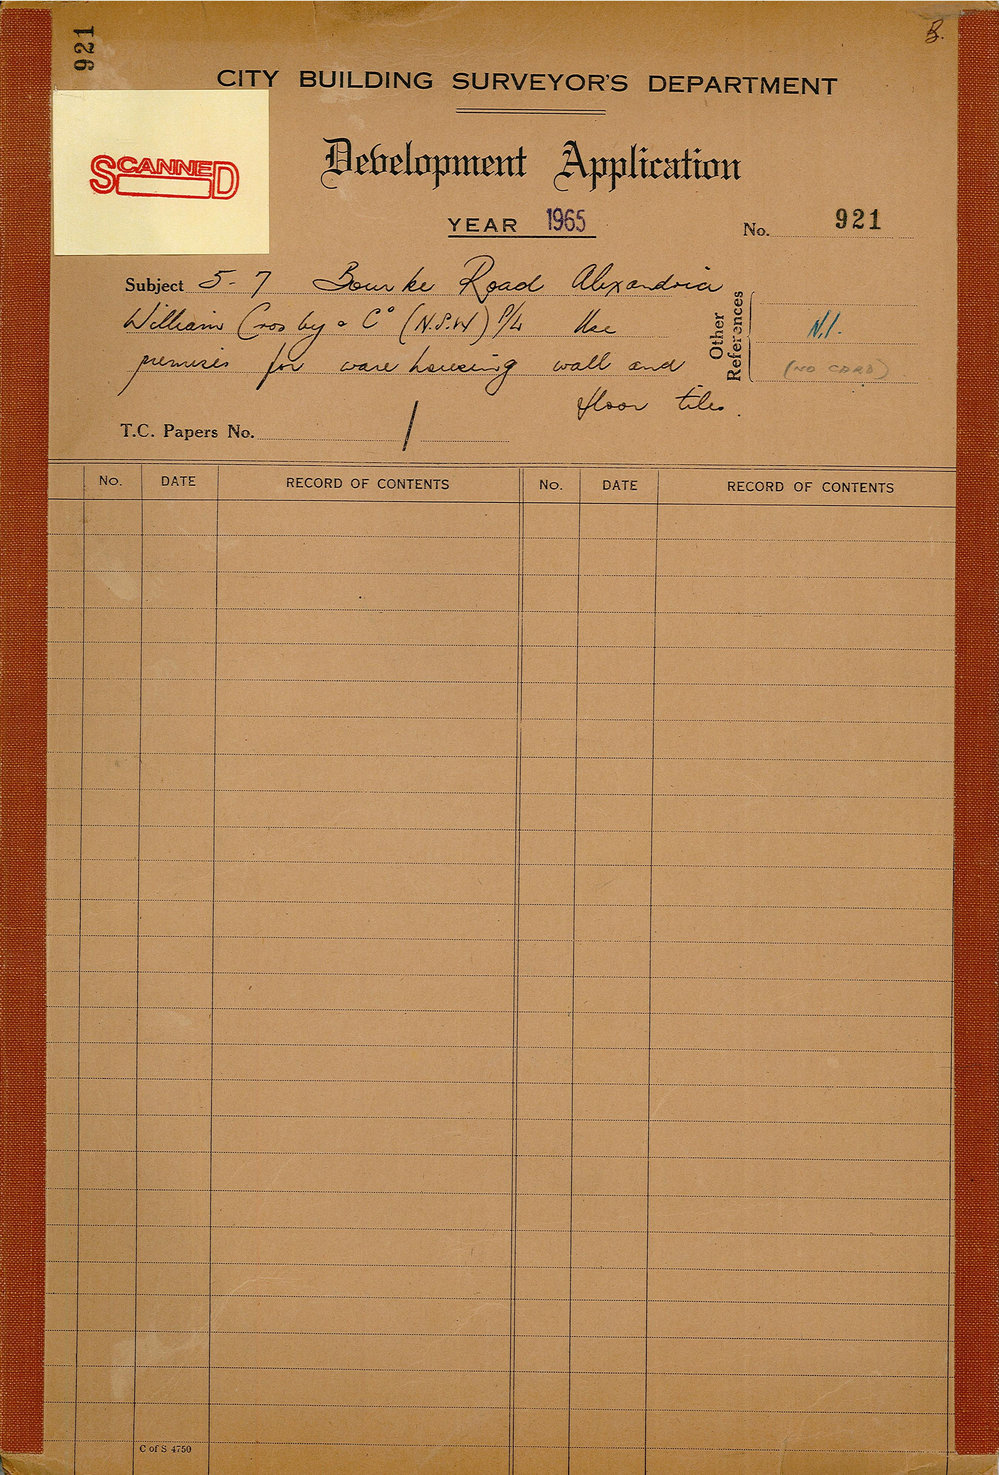 921
B.
CITY BUILDING SURVEYOR'S DEPARTMENT
SCANNED
Development Application
YEAR 1965
No. 921
Subject 5-7 Bourke Road Alexandria
William Crosby & Co (N.S.W) P/L Use
premises for warehousing wall and
floor tiles.
Other References
N.I.
(NO CARD)
T.C. Papers No. /
No. DATE RECORD OF CONTENTS No. DATE RECORD OF CONTENTS
C of S 4750